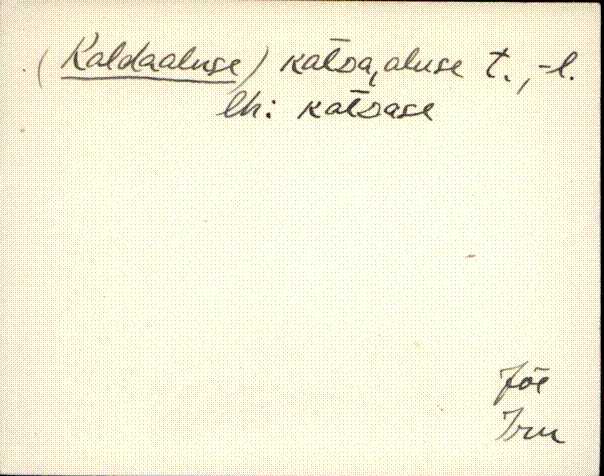 (Kaldaaluse) katsa,aluse t., -l.
lh: katsase
Jõe
Iru